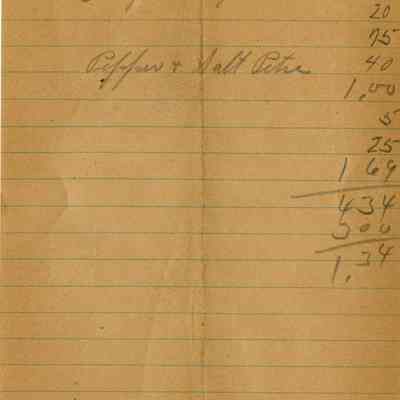 20
75
Pepper + Salt Petre 40
1,00
5
25
1 69
4 34
3 00
1,34